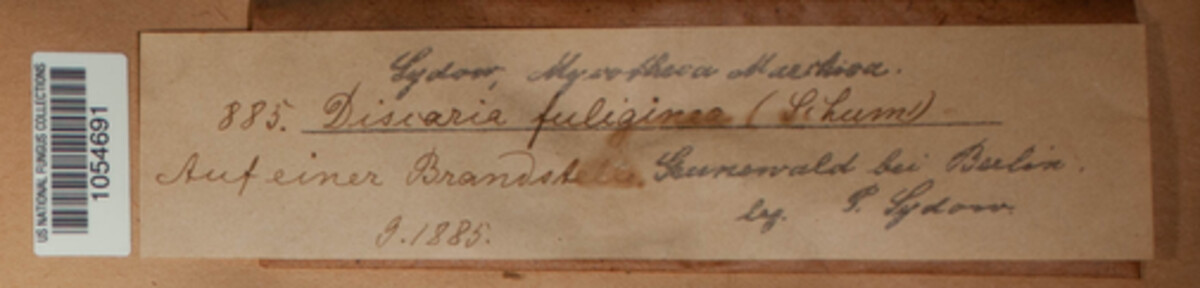 US NATIONAL FUNGUS COLLECTIONS
1054691
Sydow, Mycotheca Marchica.
885. Discaria fuliginea (Schum)
Auf einer Brandstelle. Grunewald bei Berlin.
9.1885. leg. P. Sydow.